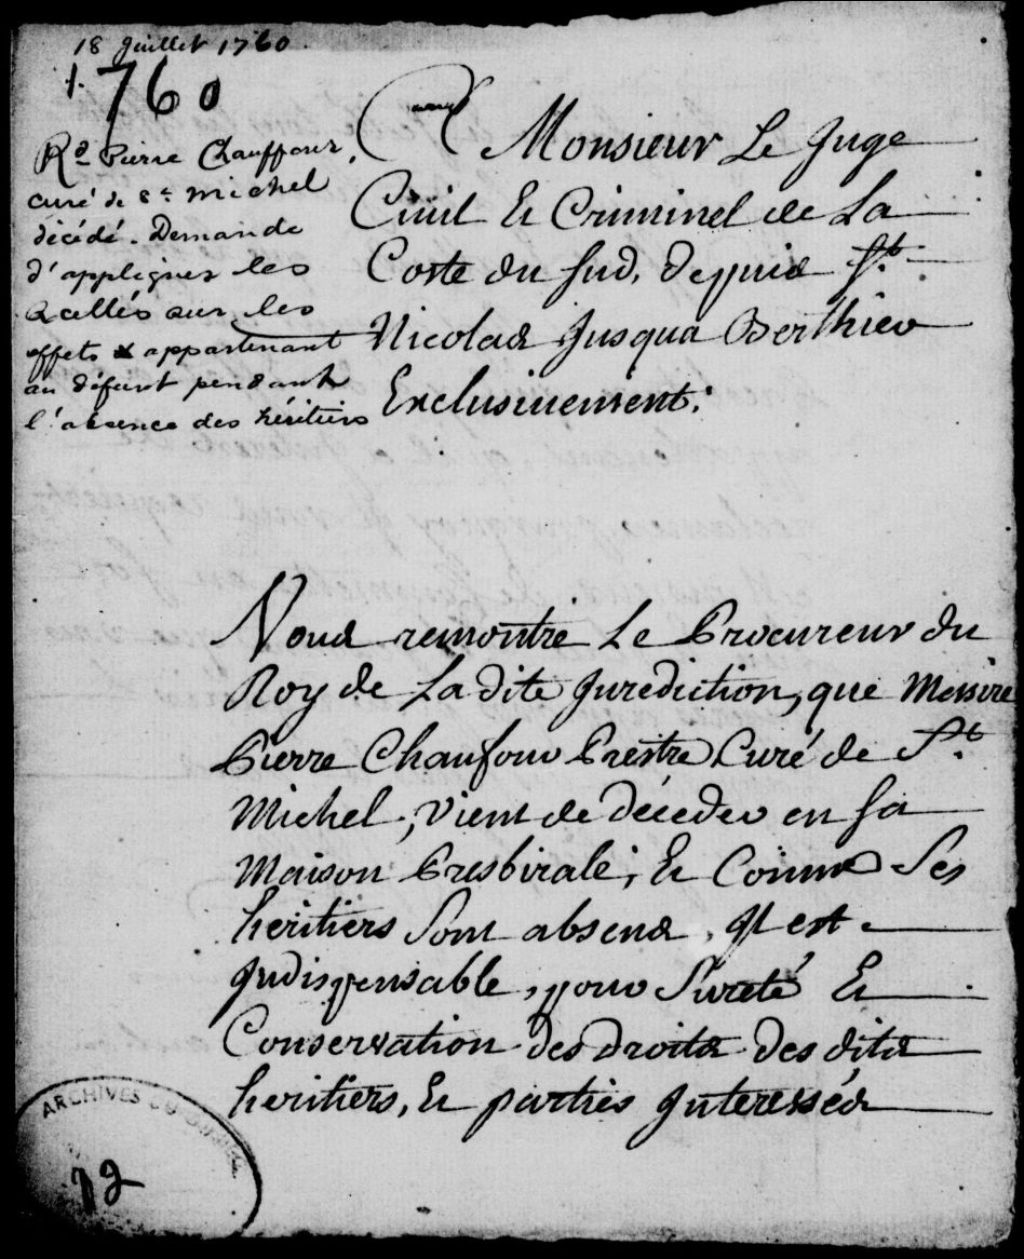 18 Juillet 1760.
1.760
Rd Pierre Chauffour,
curé de St Michel
décédé. Demande
d'appliquer les
scellés sur les
effets appartenant
au défunt pendant
l'absence des héritiers
A Monsieur Le Juge
Civil Et Criminel de La
Coste du Sud, Depuis St.
Nicolas Jusqua Berthier
Exclusivement.
Vous remontre Le Procureur du
Roy de La dite Jurediction, que Messire
Pierre Chaufour Prestre Curé de St.
Michel, vient de décéder en sa
Maison Presbirale, Et Comme Ses
heritiers Sont absens, Il est
Indispensable, pour Sureté Et
Conservation des droits des dits
heritiers, Et parties Interessés
ARCHIVES DU QUÉBEC
12